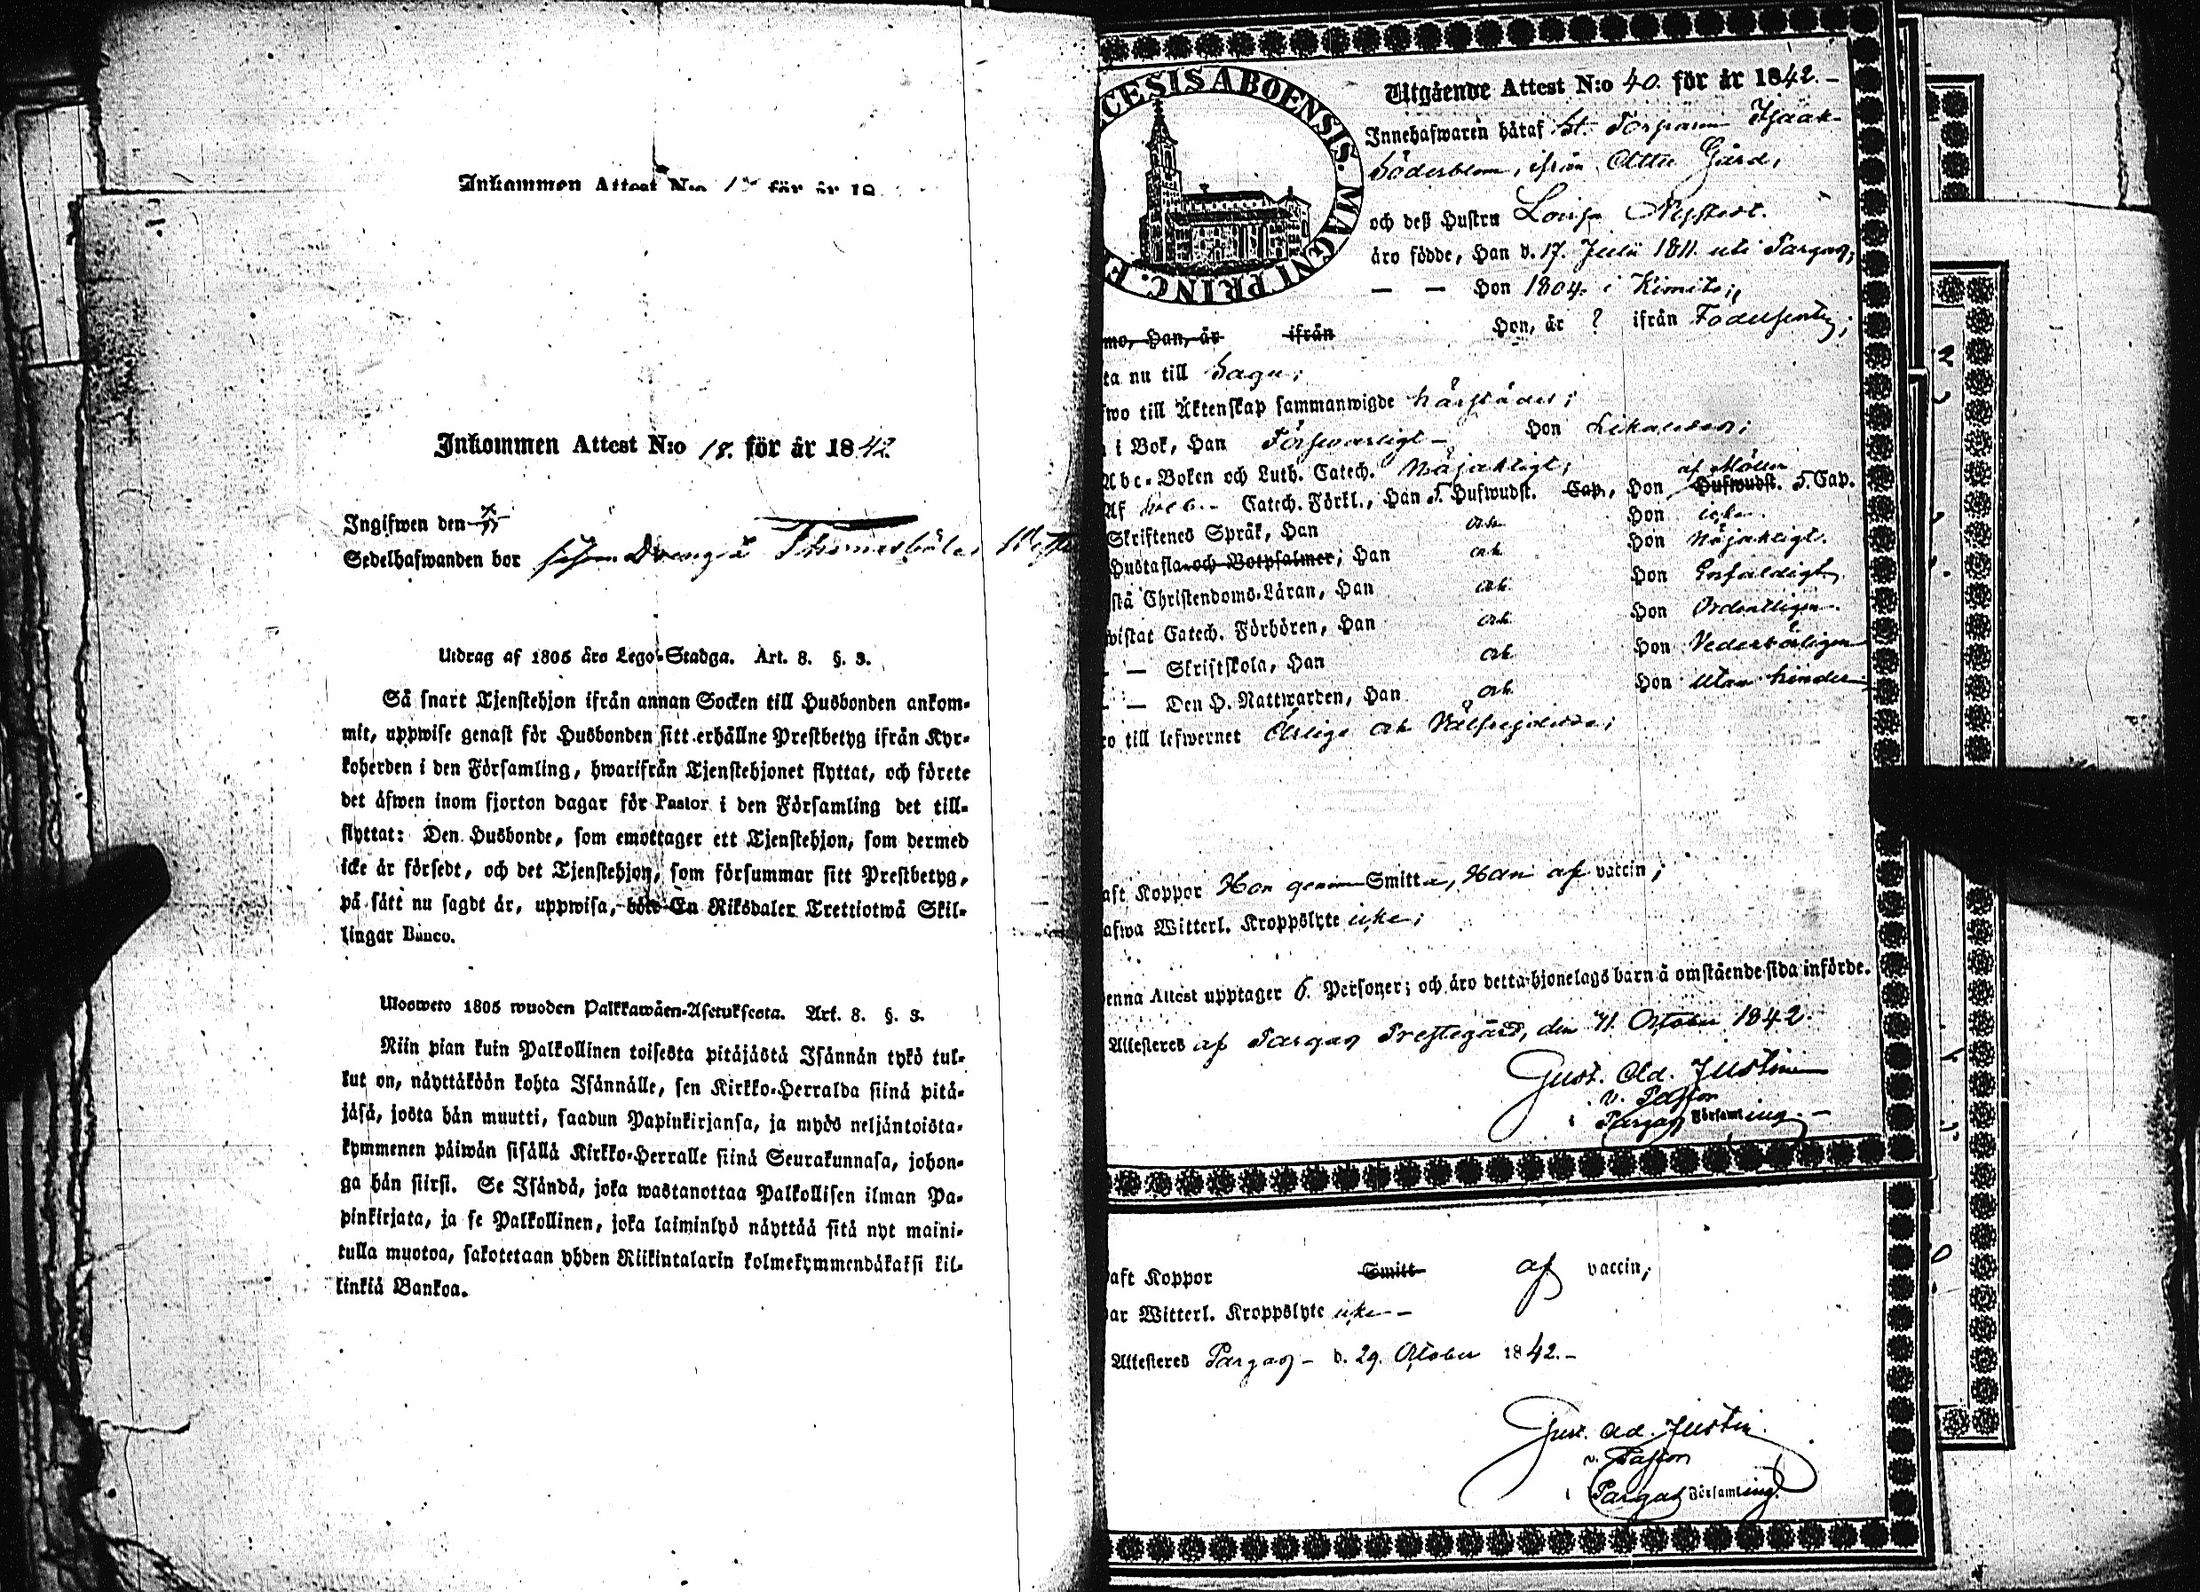 Inkommen Attest N:o för år 18
Inkommen Attest N:o 18. för år 1842
Ingifwen den
Sedelhafwanden bor såsom Dräng å Thomasböle
Utdrag af 1805 års Lego-Stadga. Art. 8. §. 3.
Så snart Tjenstehjon ifrån annan Socken till Husbonden ankom-
mit, uppwise genast för Husbonden sitt erhållne Prestbetyg ifrån Kyr-
koherden i den Församling, hwarifrån Tjenstehjonet flyttat, och förete
det äfwen inom fjorton dagar för Pastor i den Församling det till-
flyttat: Den Husbonde, som emottager ett Tjenstehjon, som dermed
icke är försedt, och det Tjenstehjon, som försummar sitt Prestbetyg,
på sätt nu sagdt är, uppwisa, böte En Riksdaler Trettiotwå Skil-
lingar Banco.
Uloswetö 1805 wuoden Palkkawäen-Asetuksesta. Art. 8. §. 3.
Niin pian kuin Palkollinen toisesta pitäjästä Isännän tykö tul-
lut on, näyttäköön kohta Isännälle, sen Kirkko-Herralda siinä pitä-
jäsä, josta hän muutti, saadun Papinkirjansa, ja myös neljäntoista-
kymmenen päiwän sisällä Kirkko-Herralle siinä Seurakunnasa, johon-
ga hän siirsi. Se Isändä, joka wastanottaa Palkollisen ilman Pa-
pinkirjata, ja se Palkollinen, joka laiminlyö näyttää sitä nyt maini-
tulla muotoa, sakotetaan yhden Riikintalarin kolmekymmendäkaksi kil-
linkiä Bankoa.
CESIS ABOENSIS. MAGNI PRINC. F
Utgående Attest N:o 40. för år 1842.-
Innehafwaren håraf St. Torparen Isaak
Söderblom, ifrån Attu Gård,
och deß Hustru Lovisa Nyqvist.
äro födde, Han d. 17. Julii 1811. uti Pargas;
— — Hon 1804. i Kimito;
mo, Han, är ifrån Hon, är ? ifrån Födelseorten;
ta nu till Sagu;
wo till Äktenskap sammanwigde härstädes;
i Bok, Han Försvarligt - Hon Likaledes;
Abc-Boken och Luth. Catech. Nöjaktigt;
Af Catech. Förkl., Han 5. Hufwudst. Cap., Hon af Möller Hufwudst. 5. Cap.
Skriftenes Språk, Han och Hon icke.
Hustafla och Botpsalmer; Han och Hon Nöjaktigt.
stå Christendoms-Läran, Han och Hon Enfaldigt.
wistat Catech. Förhören, Han och Hon Ordentligen.
— Skriftskola, Han och Hon Vederbörligen
— Den H. Nattwarden, Han och Hon utan hinder
ro till lefwernet Ärlige och Välfrejdade;
aft Koppor Hon genom Smitta, Han af vaccin;
afwa Witterl. Kroppslyte icke;
enna Attest upptager 6. Personer; och äro detta hjonelags barn å omstående sida införde.
Attesteres af Pargas Prestegård, den 11. October 1842.
Gust. Ad. Justin
v. Pastor
i Pargas Församling.-
aft Koppor Smitt af vaccin;
ar Witterl. Kroppslyte icke -
Attesteres Pargas - d. 29. October 1842.-
Gust. Ad. Justin.
v. Pastor
i Pargas Församling.